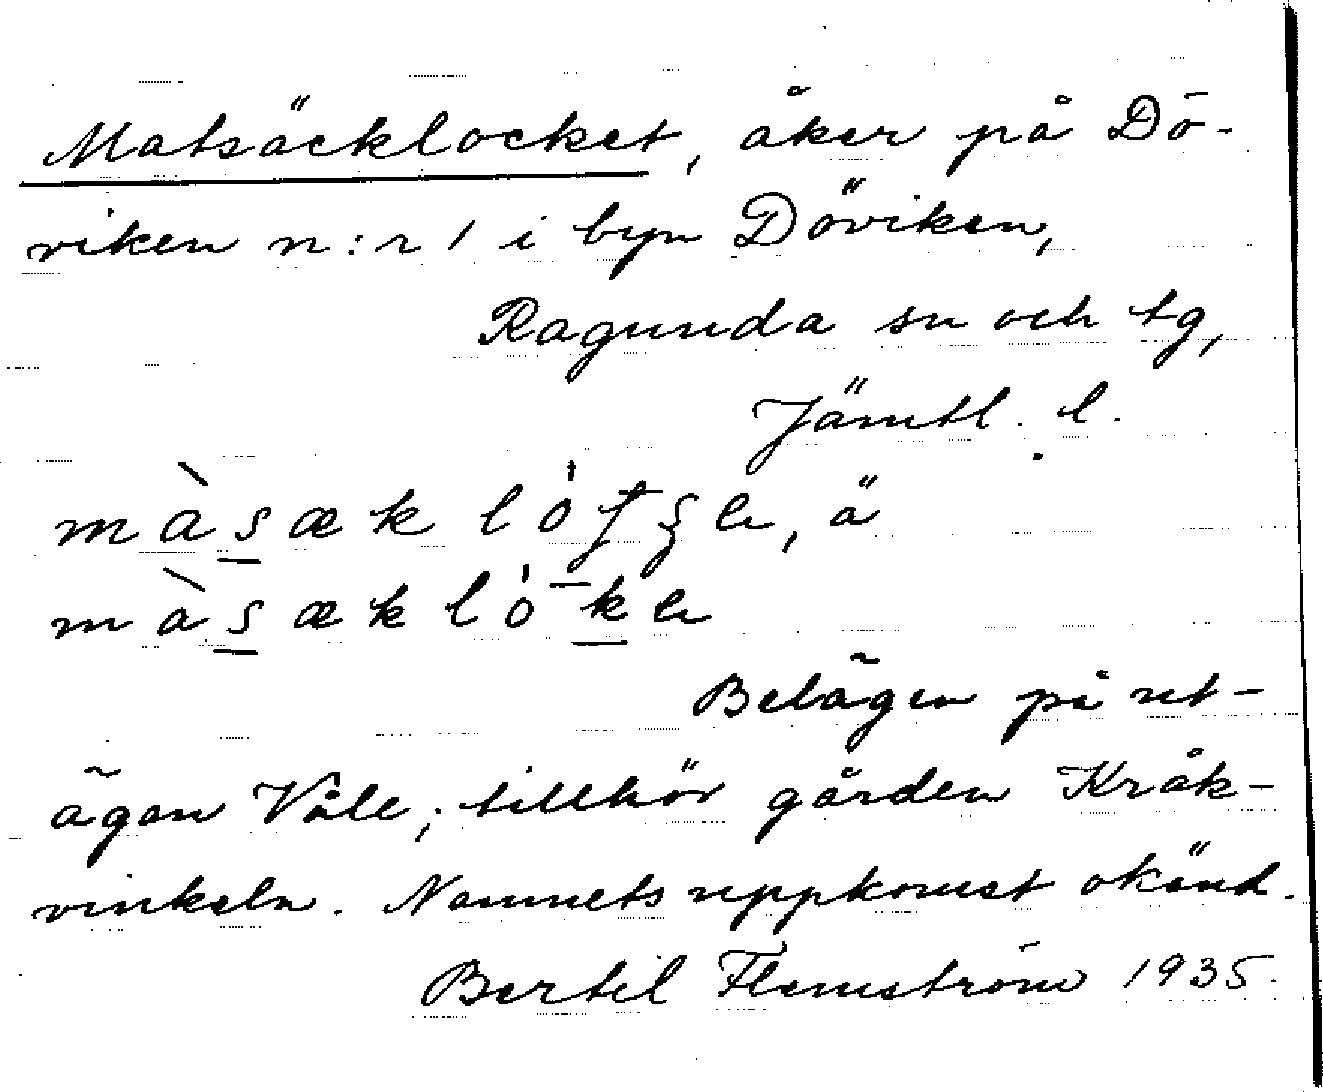 Matsäcklocket, åker på Dö-
viken n:r 1 i byn Döviken,
Ragunda sn och tg,
Jämtl. l.
màsæk
màsæk
Belägen på ut-
ägan Våle; tillhör gården Kråk-
vinkeln. Namnets uppkomst okänd.
Bertil Flemström 1935.